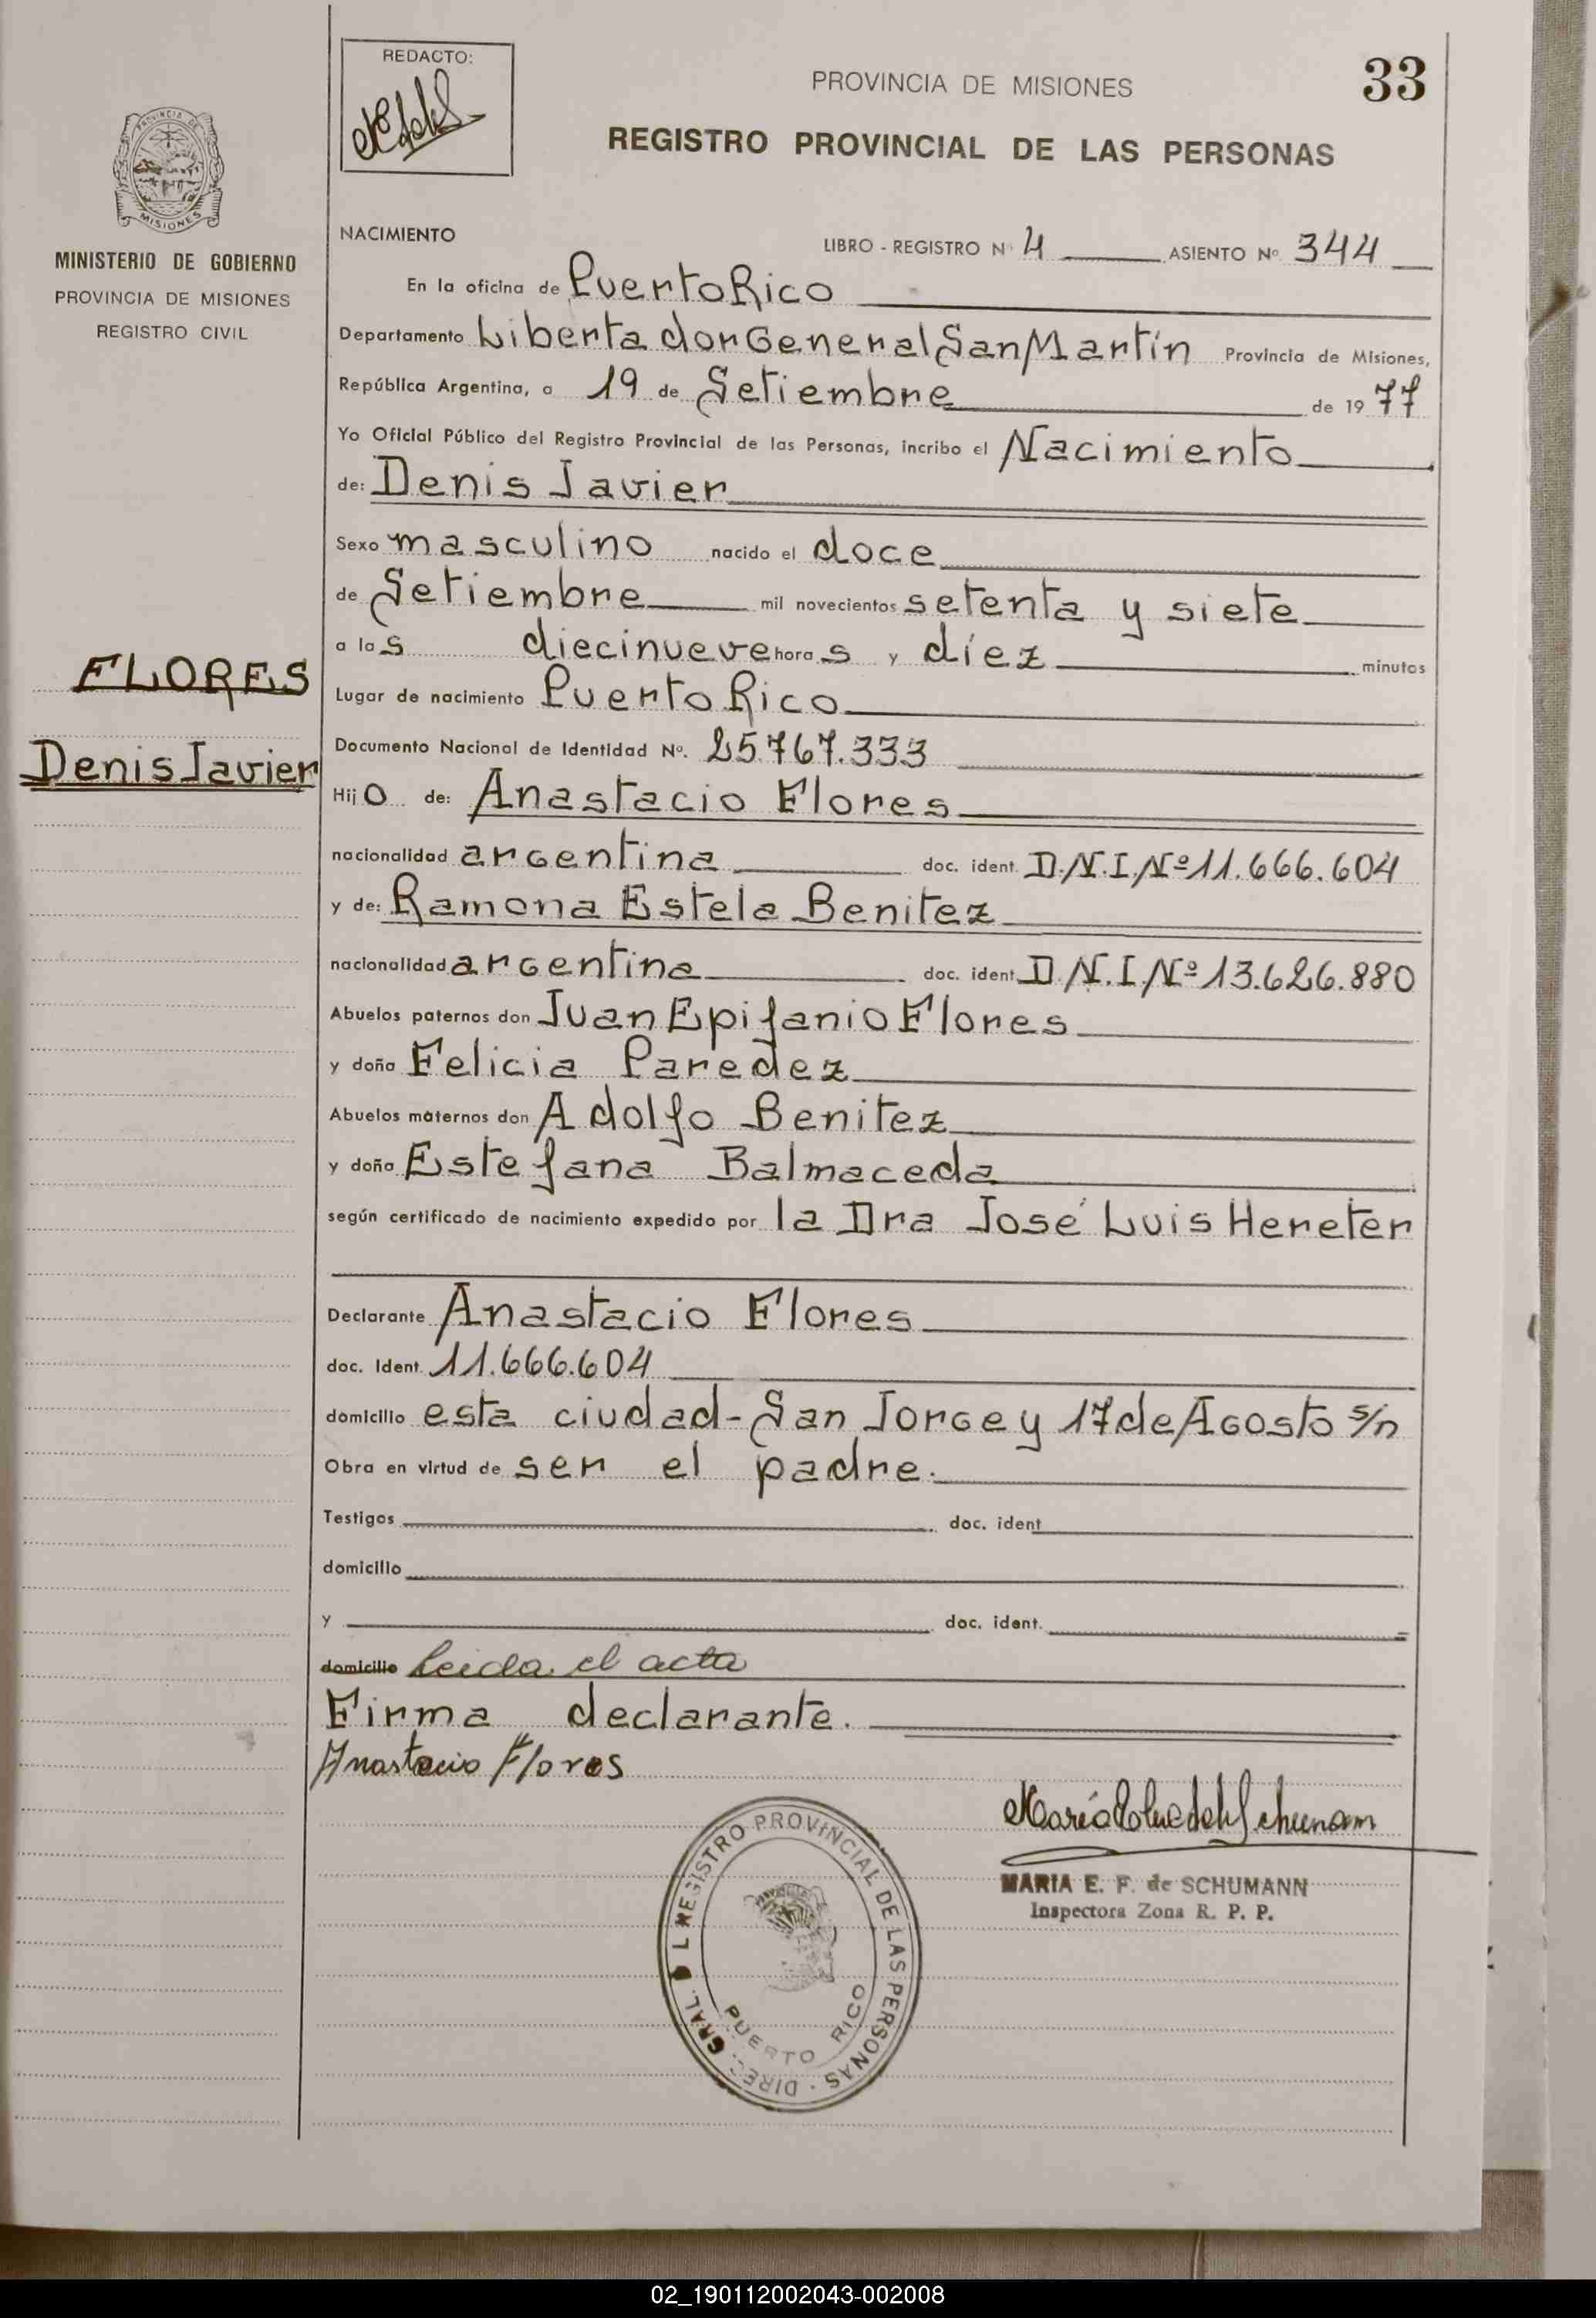 REDACTO:
33
PROVINCIA DE MISIONES
REGISTRO PROVINCIAL DE LAS PERSONAS
PROVINCIA DE
MISIONES
MINISTERIO DE GOBIERNO
PROVINCIA DE MISIONES
REGISTRO CIVIL
FLORES
Denis Javier
NACIMIENTO
LIBRO - REGISTRO Nº 4 ASIENTO Nº 344
En la oficina de Puerto Rico
Departamento Libertador General San Martín Provincia de Misiones,
República Argentina, a 19 de Setiembre de 1977
Yo Oficial Público del Registro Provincial de las Personas, incribo el Nacimiento
de: Denis Javier
Sexo masculino nacido el doce
de Setiembre mil novecientos setenta y siete
a las diecinueve horas y díez minutos
Lugar de nacimiento Puerto Rico
Documento Nacional de Identidad Nº. 25.767.333
Hijo de: Anastacio Flores
nacionalidad argentina doc. ident. D.N.I.Nº 11.666.604
y de: Ramona Estela Benitez
nacionalidad argentina doc. ident. D.N.I.Nº 13.626.880
Abuelos paternos don Juan Epifanio Flores
y doña Felicia Paredez
Abuelos maternos don Adolfo Benitez
y doña Estefana Balmaceda
según certificado de nacimiento expedido por la Dra José Luis Hereter
Declarante Anastacio Flores
doc. Ident. 11.666.604
domicilio esta ciudad - San Jorge y 17 de Agosto s/n
Obra en virtud de ser el padre.
Testigos doc. ident
domicilio
y doc. ident.
domicilio Leida el acta
Firma declarante.
Anastacio Flores
MARIA E. F. de SCHUMANN
Inspectora Zona R. P. P.
DIREC. GRAL. DEL REGISTRO PROVINCIAL DE LAS PERSONAS
PUERTO RICO
02_190112002043-002008